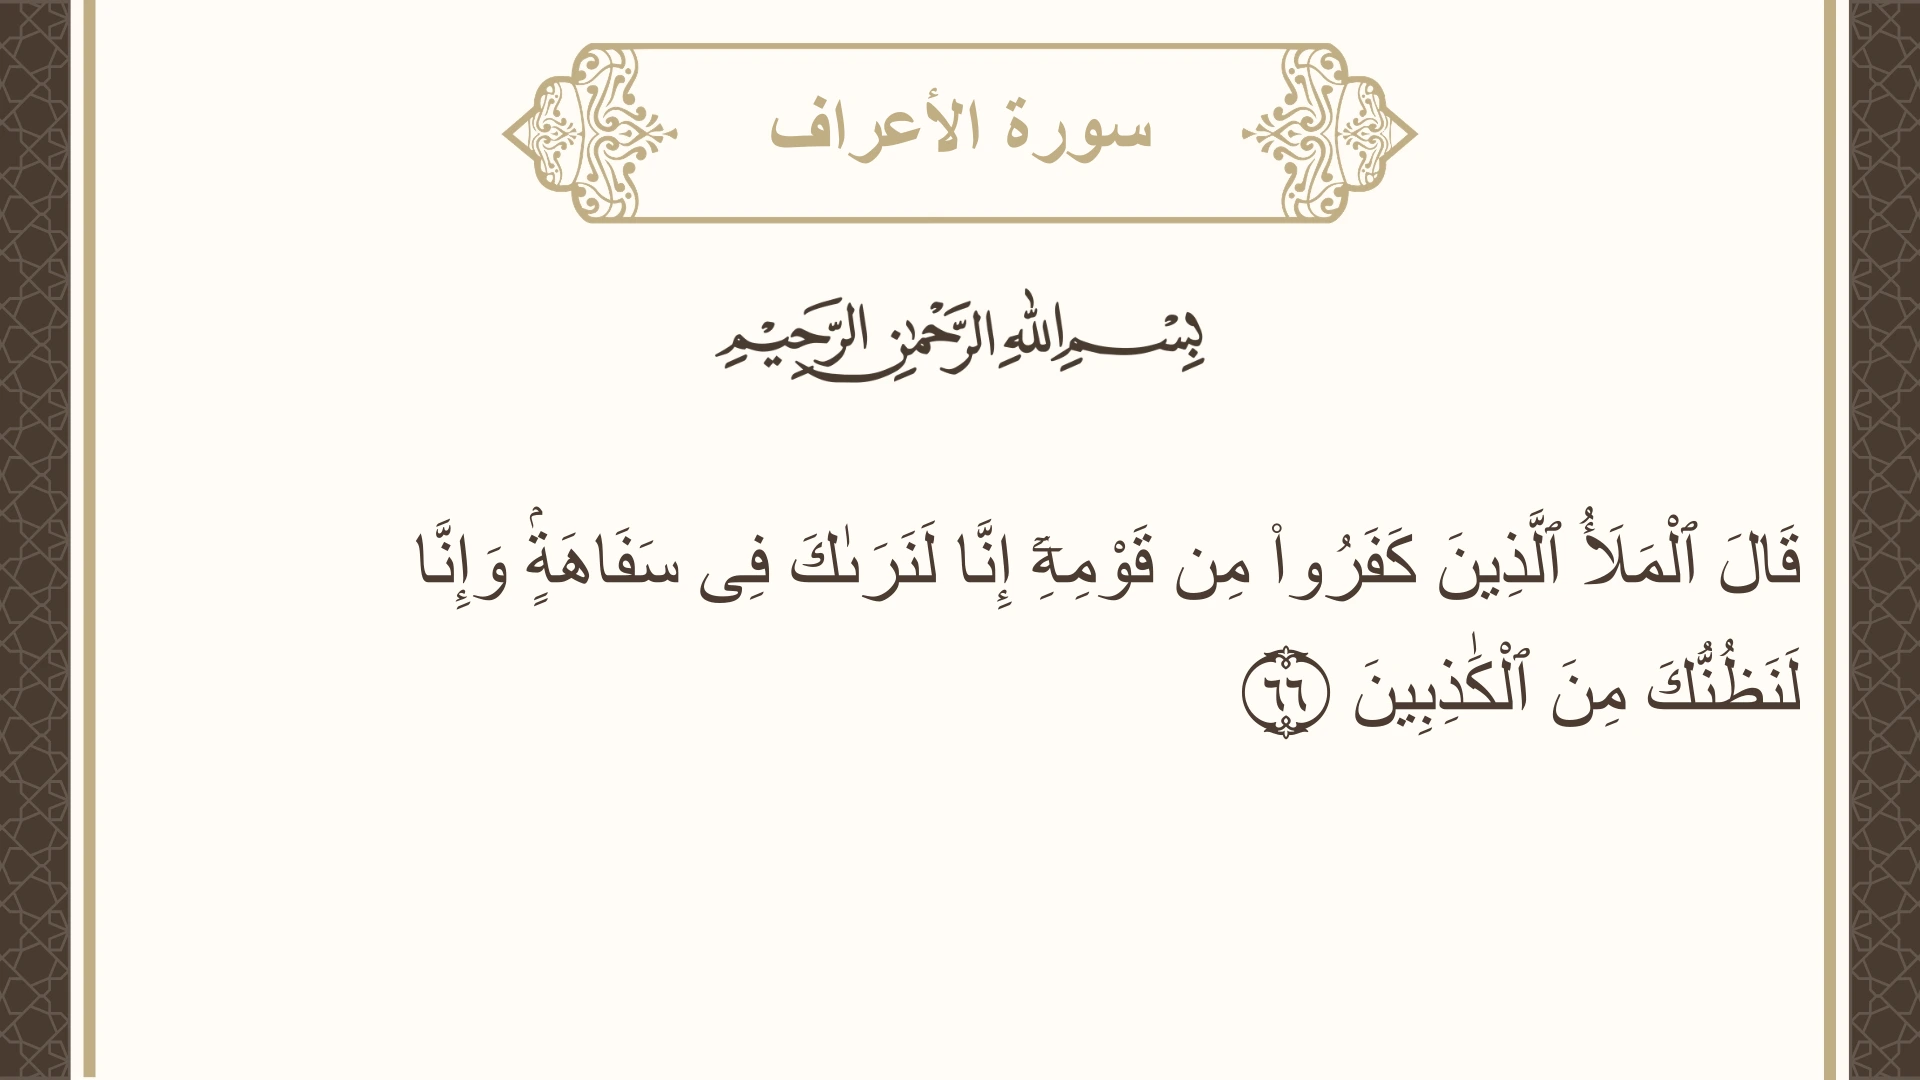 سورة الأعراف
بِسْمِ اللهِ الرَّحْمٰنِ الرَّحِيْمِ
قَالَ ٱلْمَلَأُ ٱلَّذِينَ كَفَرُوا۟ مِن قَوْمِهِۦٓ إِنَّا لَنَرَىٰكَ فِى سَفَاهَةٍۢ وَإِنَّا
لَنَظُنُّكَ مِنَ ٱلْكَٰذِبِينَ ٦٦